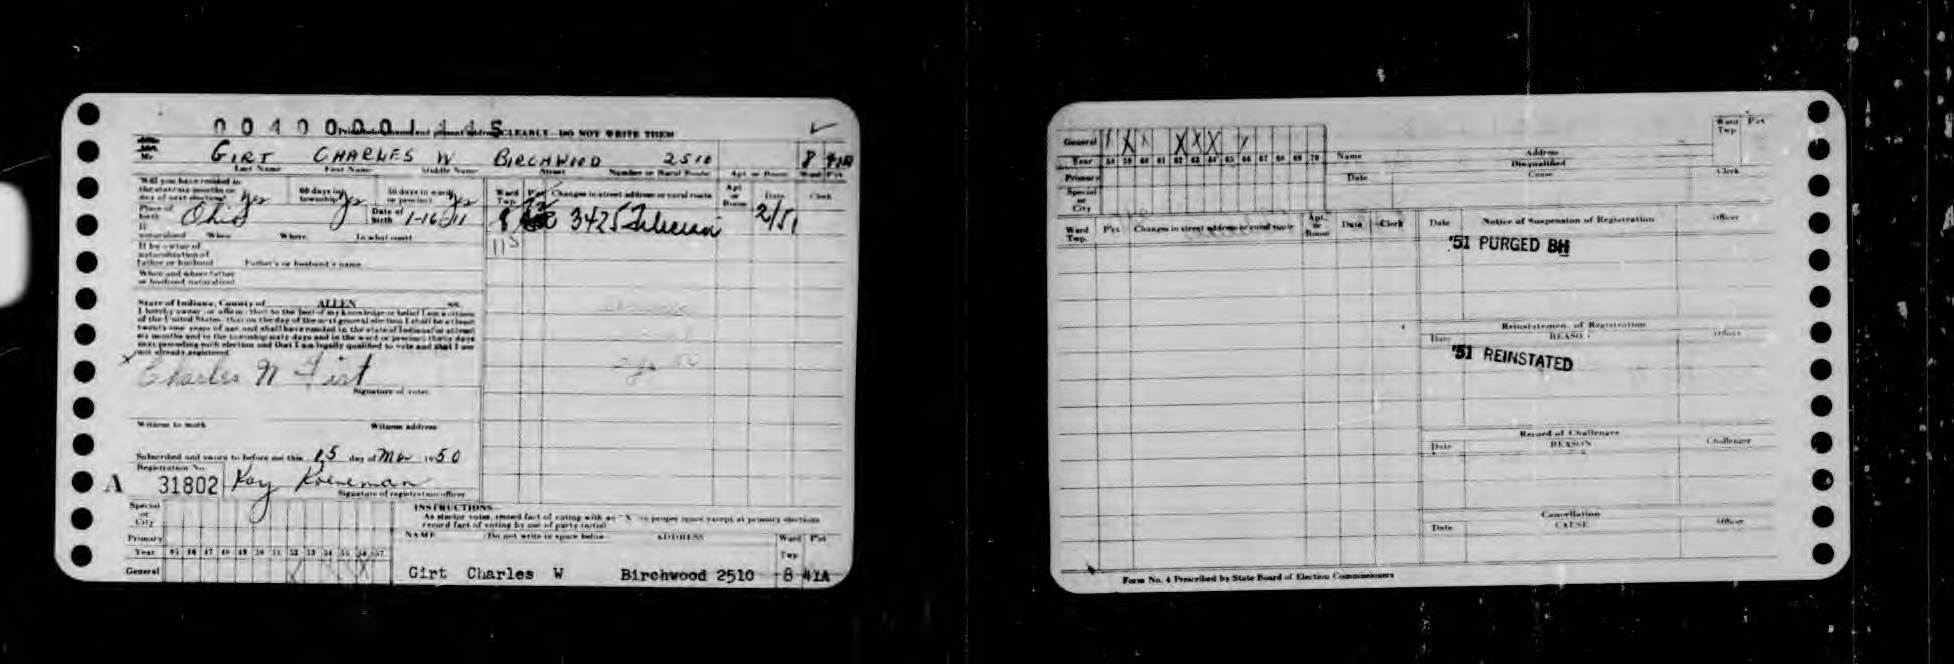 0040000115
Print name and present address CLEARLY—DO NOT WRITE THEM
Mr. GIRT CHARLES W BIRCHWOOD 2510 8 41A
Last Name First Name Middle Name Street Number or Rural Route Apt or Room Ward Pct
Will you have resided in the state six months on day of next election? Yes 60 days in township? Yes 30 days in ward or precinct? Yes
Ward Twp. Pct Changes in street address or rural route Apt or Room Date Clerk
Place of birth Ohio Date of birth 1-16-11
8 3425 2/51
115
If naturalized When Where In what court
If by virtue of naturalization of father or husband Father's or husband's name
When and where father or husband naturalized
State of Indiana, County of ALLEN ss.
I hereby swear or affirm that to the best of my knowledge or belief I am a citizen
of the United States, that on the day of the next general election I shall be at least
twenty-one years of age and shall have resided in the state of Indiana for at least
six months and in the township sixty days and in the ward or precinct thirty days
next preceding such election and that I am legally qualified to vote and that I am
not already registered.
x Charles W Girt
Signature of voter
Witness to mark Witness address
Subscribed and sworn to before me this 15 day of Mar 1950
Registration No.
A 31802 Kay Koeneman
Signature of registration officer
Special or City
Primary
Year 45 46 47 48 49 50 51 52 53 54 55 56 57
General
INSTRUCTIONS
As elector votes, record fact of voting with an "X" in proper space except at primary elections
record fact of voting by use of party initial
NAME (Do not write in space below) ADDRESS Ward Twp Pct
Girt Charles W Birchwood 2510 8 41A
General X X X X X
Year 58 59 60 61 62 63 64 65 66 67 68 69 70
Primary
Special or City
Name Address Ward Twp. Pct
Disqualified
Date Cause Clerk
Ward Twp. Pct. Changes in street address or rural route Apt. or Room Date Clerk
Date Notice of Suspension of Registration Officer
'51 PURGED BH
Reinstatement of Registration
Date REASON Officer
'51 REINSTATED
Record of Challenges
Date REASON Challenger
Cancellation
Date CAUSE Officer
Form No. 4 Prescribed by State Board of Election Commissioners